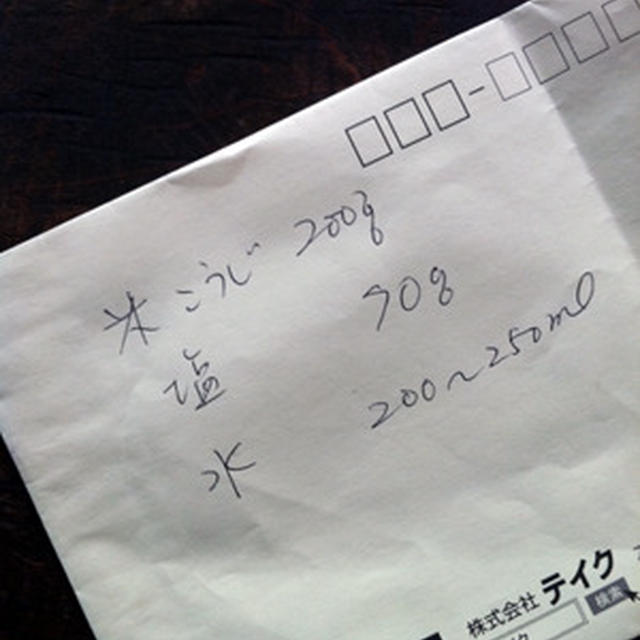 米こうじ 200g
塩 70g
水 200～250ml
株式会社 テイク